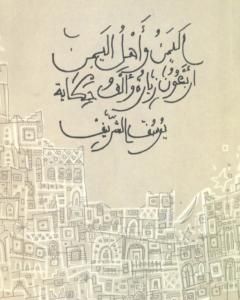 اليمن وأهل اليمن
أربعون زيارة وألف حكاية
يوسف الشريف